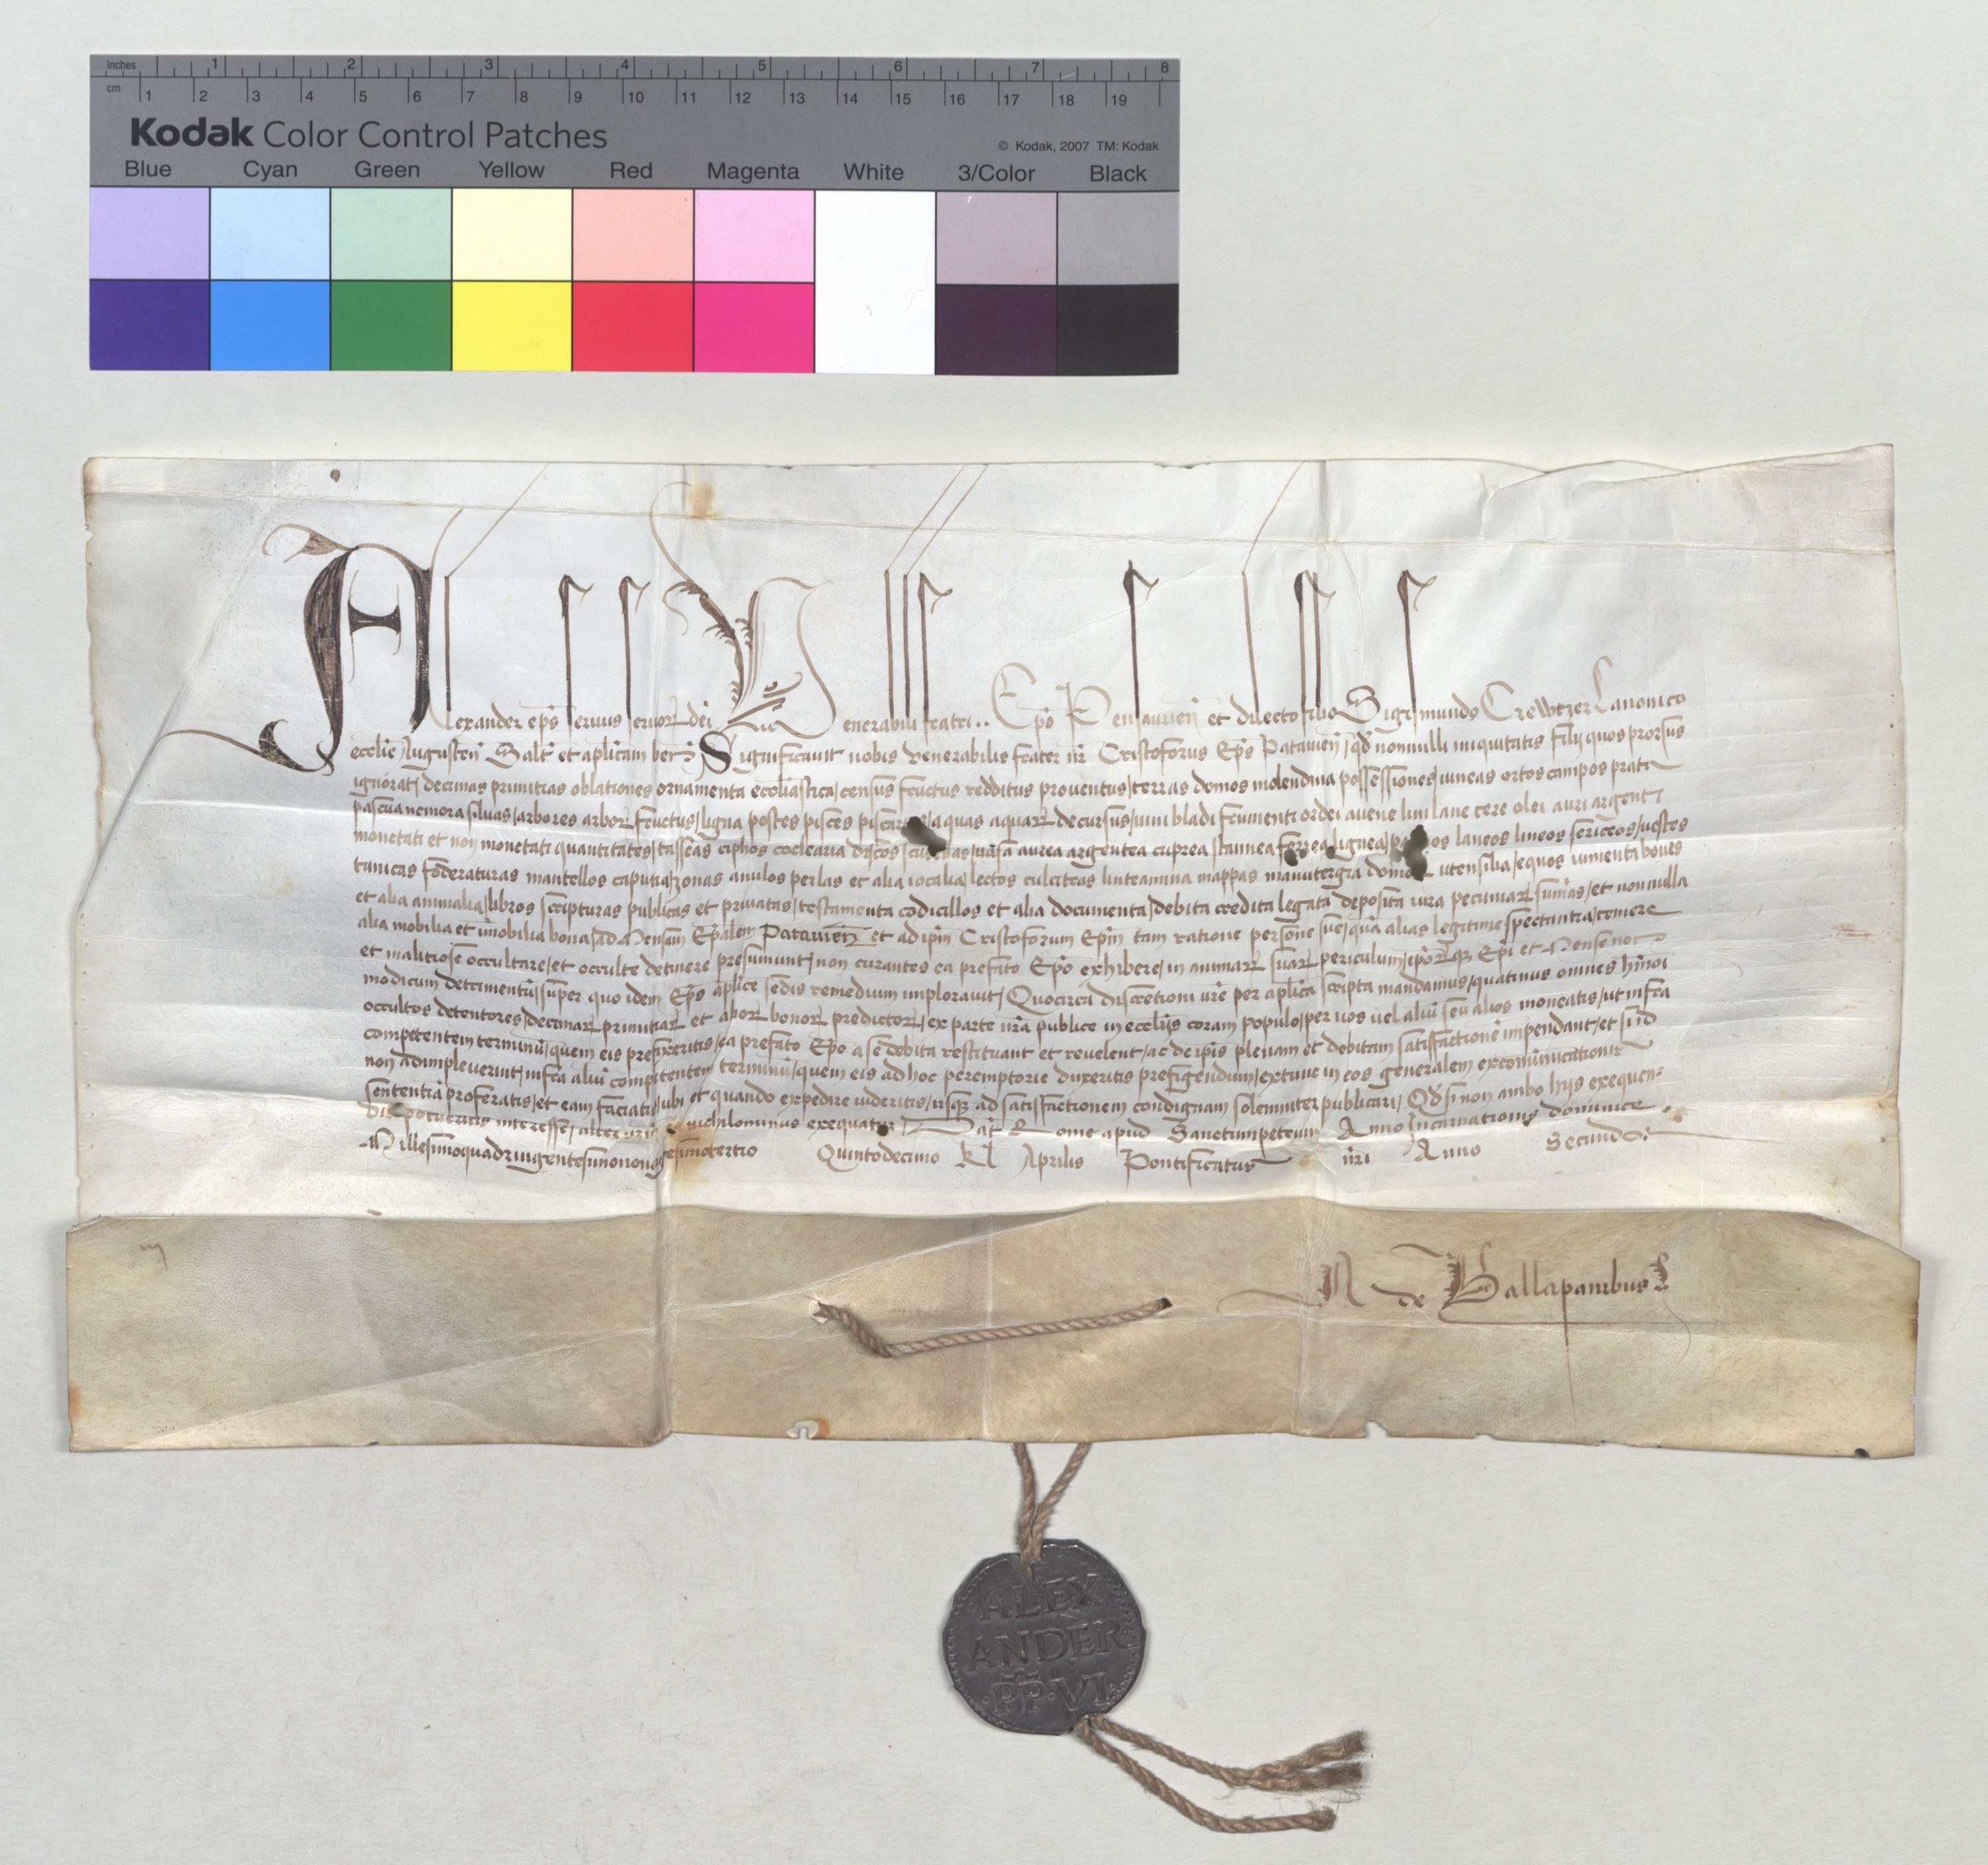 inches 1 2 3 4 5 6 7 8
cm 1 2 3 4 5 6 7 8 9 10 11 12 13 14 15 16 17 18 19
Kodak Color Control Patches
© Kodak, 2007 TM: Kodak
Blue Cyan Green Yellow Red Magenta White 3/Color Black
Alexander ep̄s seruus seruoꝝ dei Ven enerabili fratri .. Ep̄o Pensaurien̄ et dilecto filio Sigismundo Crewtzer Canonico
ecclie Augusten̄ Salt̄ et apl̄icam ben̄ Significauit nobis venerabilis frater nr̄ Cristoforus Ep̄s Patauien̄ / qd̄ nonnulli iniquitatis filij quos prorsus
ignorat / decimas primitias oblationes ornamenta ecclīastica / census fructus redditus prouentus / terras domos molendina possessiones vineas ortos campos prata
pascua nemora siluas / arbores arboꝝ fructus / ligna postes pisces / aquas aquaꝝ decursus / vini bladi frumenti ordei auene lini lane cere olei auri argenti
monetati et non monetati quantitates / tasseas ciphos coclearia discos / vasa aurea argentea cuprea stannea ferrea lignea / laneos lineos sericeos / vestes
tunicas foderaturas mantellos caputia / zonas anulos perlas et alia iocalia / lectos culcitras linteamina mappas manutergia domoꝝ utensilia / equos iumenta boues
et alia animalia / libros scripturas publicas et priuatas / testamenta codicillos et alia documenta / debita credita legata deposita iura pecuniaꝝ sum̄as / et nonnulla
alia mobilia et im̄obilia bona / ad Mensam Ep̄alem Patauien̄ et ad ip̄m Cristoforum Ep̄m tam ratione persone sue / quā alias legitime spectantia / temere
et malitiose occultare / et occulte detinere presumunt / non curantes ea prefato Ep̄o exhibere / in animaꝝ suaꝝ periculum / ip̄oꝝqꝫ Ep̄i et Mense non
modicum detrimentū / super quo idem Ep̄s apl̄ice sedis remedium implorauit / Quocirca discretioni vr̄e per apl̄ica scripta mandamus / quatinus omnes hmōi
occultos detentores / decimaꝝ primitiaꝝ et alioꝝ bonoꝝ predictoꝝ / ex parte nr̄a publice in ecclijs coram populo / per vos vel aliū seu alios moneatis / ut infra
competentem terminū / quem eis prefixeritis / ea prefato Ep̄o a se debita restituant et reuelent / ac de ip̄is plenam et debitam satisfactionē impendant / et si id
non adimpleuerint / infra aliū competentem terminū / quem eis ad hoc peremptorie duxeritis prefigendum / extunc in eos generalem excom̄unicationis
sententiā proferatis / et eam faciatis / ubi et quando expedire uideritis / usqꝫ ad satisfactionem condignam solemniter publicari / Qd̄ si non ambo hijs exequen=
dis potueritis interesse / alter vr̄m nichilominus exequatur Dat̄ Rome apud Sanctumpetrum Anno Incarnationis dominice
Millesimoquadringentesimononagesimotertio Quintodecimo Kl̄ Aprilis Pontificatus nr̄i Anno Secundo
N de Ballapanibus
ALEX
ANDER
·PP·VI·